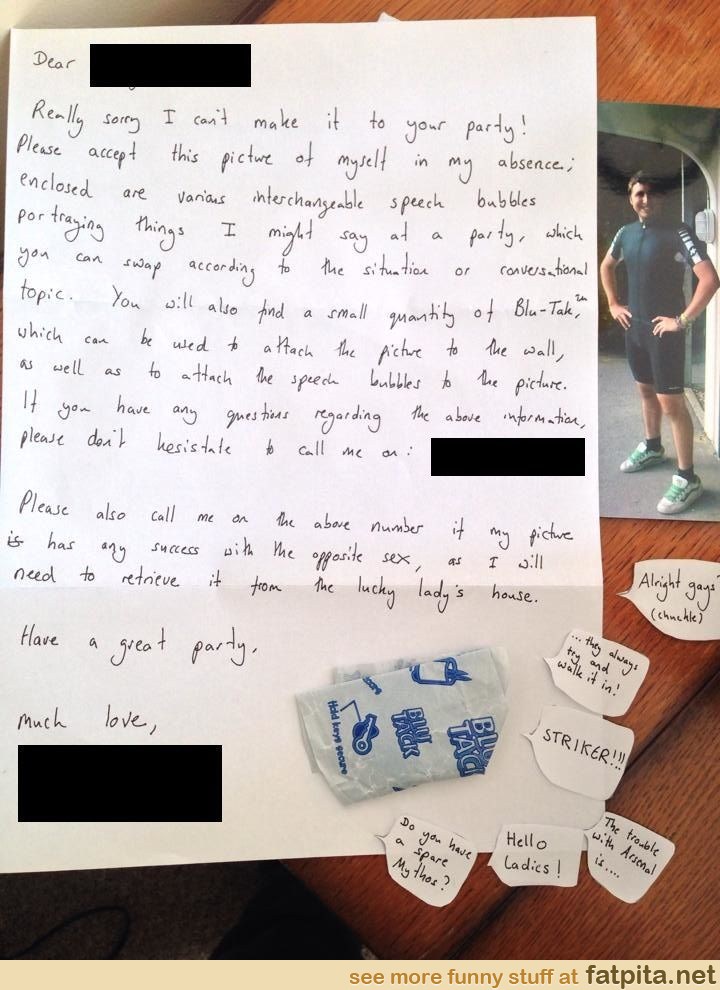 Dear
Really sorry I can't make it to your party!
Please accept this picture of myself in my absence;
enclosed are various interchangeable speech bubbles
portraying things I might say at a party, which
you can swap according to the situation or conversational
topic. You will also find a small quantity of Blu-Tak,™
which can be used to attach the picture to the wall,
as well as to attach the speech bubbles to the picture.
If you have any questions regarding the above information,
please don't hesistate to call me on:
Please also call me on the above number if my picture
is has any success with the opposite sex, as I will
need to retrieve it from the lucky lady's house.
Have a great party.
Much love,
Alright guys?
(chuckle)
...they always
try and
walk it in!
STRIKER!!!
Do you have
a spare
Mythos?
Hello
Ladies!
The trouble
with Arsenal
is....
Hold keys secure
BLU
TACK
BLU
TAC
see more funny stuff at fatpita.net